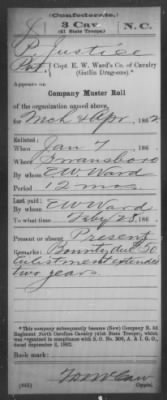 (Confederate.)
3 Cav. N. C.
(41 State Troops.)
J P Justice
Pvt, Capt. E. W. Ward's Co. of Cavalry
(Gatlin Dragoons).*
Appears on
Company Muster Roll
of the organization named above,
for Mch & Apr, 1862
Enlisted:
When Jan 7, 186
Where Swansboro
By whom E W Ward
Period 12 mos
Last paid:
By whom E W Ward
To what time Feby 28, 186
Present or absent Present
Remarks: Bounty due $50
Enlistment extended
two years
*This company subsequently became (New) Company B, 3d
Regiment North Carolina Cavalry (41st State Troops), which
was organized in compliance with S. O. No. 206, A. & I. G. O.,
dated September 3, 1862.
Book mark:
(642)
Copyist.